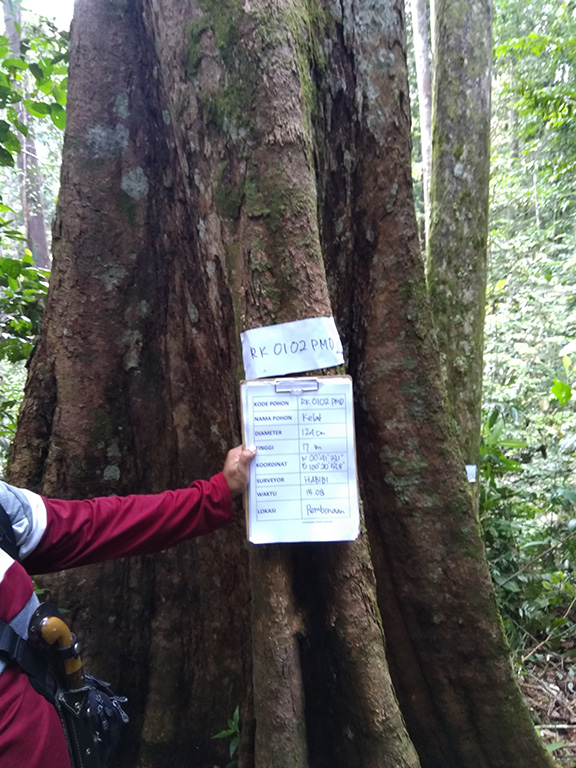 RK 0102 PMD
KODE POHON RK 0102 PMD
NAMA POHON Kelat
DIAMETER 124 cm
TINGGI 17 m
KOORDINAT N 00°
E 100°
SURVEYOR HABIBI
WAKTU 15.03
LOKASI